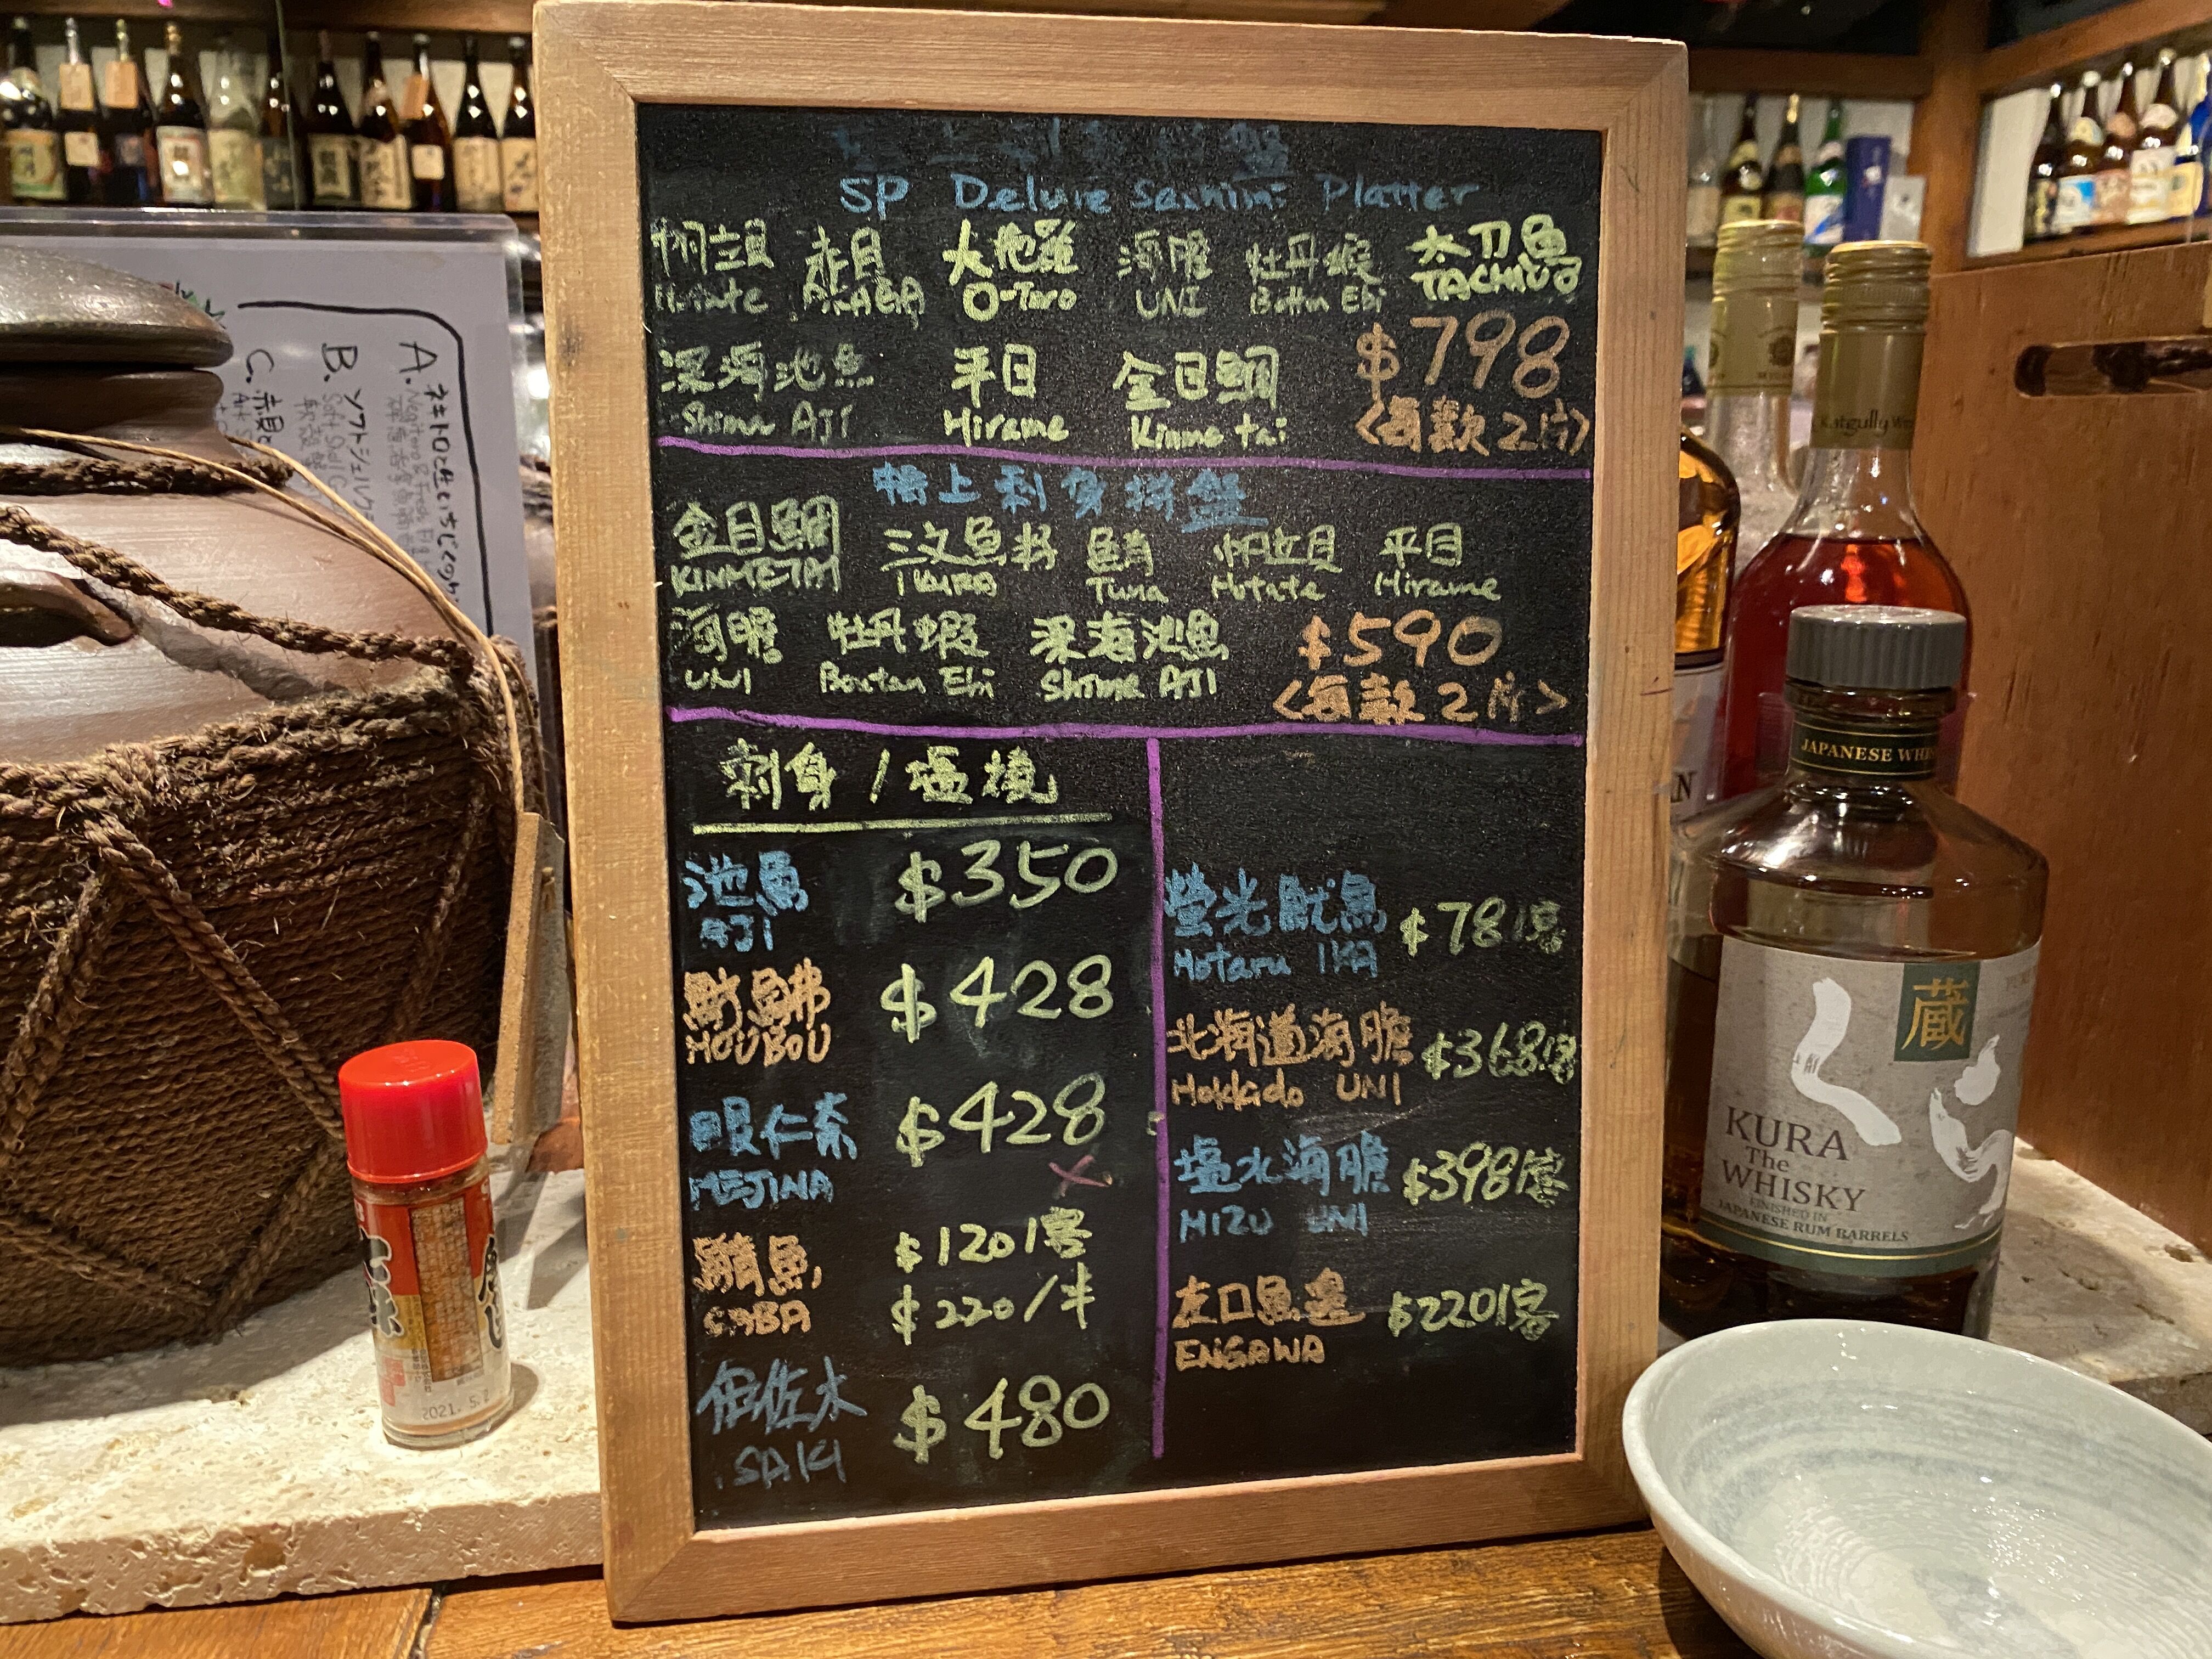 SP Deluxe Sashimi Platter
帆立貝 赤貝 大拖羅 海膽 牡丹蝦 太刀魚
Hotate AKAGA O-Toro UNI Bottan Ebi TACHIUO
$798
深海池魚 平目 金目鯛
Shima AJI Hirame Kinme tai
<每款2片>
特上刺身拼盤
金目鯛 三文魚籽 鮪 帆立貝 平目
KINMETAI IKURA Tuna Hotate Hirame
海膽 牡丹蝦 深海池魚
UNI Boutan Ebi Shima AJI
$590
<每款2片>
刺身/塩燒
池魚 $350
AJI
$428
HOUBOU
眼仁奈 $428
MEJINA
鯖魚 $120/客
SABA $220/半
伊佐木 $480
ISAKI
螢光魷魚 $78/客
Hotaru IKA
北海道海膽 $368/客
Hokkaido UNI
塩水海膽 $398/客
MIZU UNI
左口魚邊 $220/客
ENGAWA
A.
B. ソフトシェルク
C. 赤貝
Katgully
JAPANESE WHI
蔵
くら
KURA
The
WHISKY
FINISHED IN
JAPANESE RUM BARRELS
2021.5.2